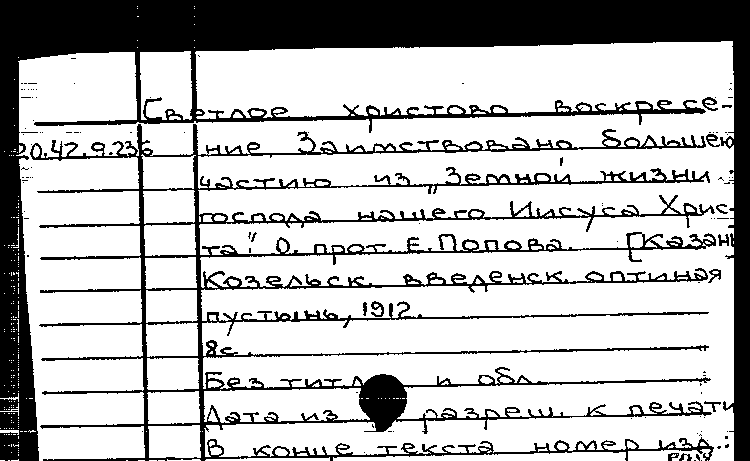 Светлое христово воскресе-
20.42.9.236 ние. Заимствовано большею
частию из „Земной жизни
господа нашего Иисуса Хрис-
та". О. прот. Е. Попова. [Казань
Козельск. введенск. оптиная
пустынь, 1912.
8с.
Без титл. и обл.
Дата из разреш. к печати
В конце текста номер изд.: